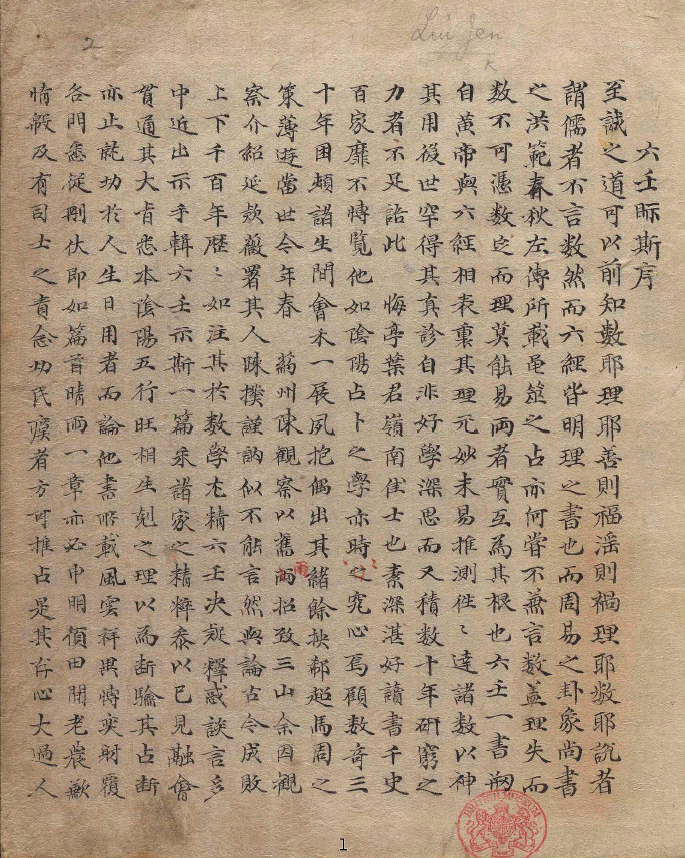 2
Liu Jen
六壬眎斯序
至誠之道可以前知數耶理耶善則福滛則禍理耶数耶說者
謂儒者不言数然而六經皆明理之書也而周易之卦象尚書
之洪範春秋左傳所載黽筮之占亦何甞不兼言數盖理失而
数不可憑数乏而理莫能易兩者實互為其根也六壬一書昉
自黄帝與六經相表裏其理元妙未易推測徃〻達諸数以神
其用後世罕得其真診自非好學深思而又積数十年研窮之
力者不足詣此 悔亭葉君嶺南佳士也素深湛好讀書千史
百家靡不愽覧他如隂陽占卜之學亦時〻究心焉顧数竒三
十年困頓諸生間會未一展夙抱偶出其緒餘挾郗超馬周之
策薄遊當世今年春 蘇州陳觀察以舊雨招致三山余因觀
察介紹延欵薇署其人踈撲謹訥似不能言然與論古今成敗
上下千百年歴〻如注其於数學尤精六壬决疑釋惑談言多
中近出示手輯六壬示斯一篇釆諸家之精粹叅以已見融會
貫通其大㫖悉本隂陽五行旺相生尅之理以為断驗其占断
亦止就功於人生日用者而論他書所載風雲祥異愽奕射覆
各門悉從刪伏即如篇首晴雨一章亦必申明傎田間老農歉
情殷及有司士之責念功民瘼者方可推占是其存心大過人
1
BRITISH MUSEUM